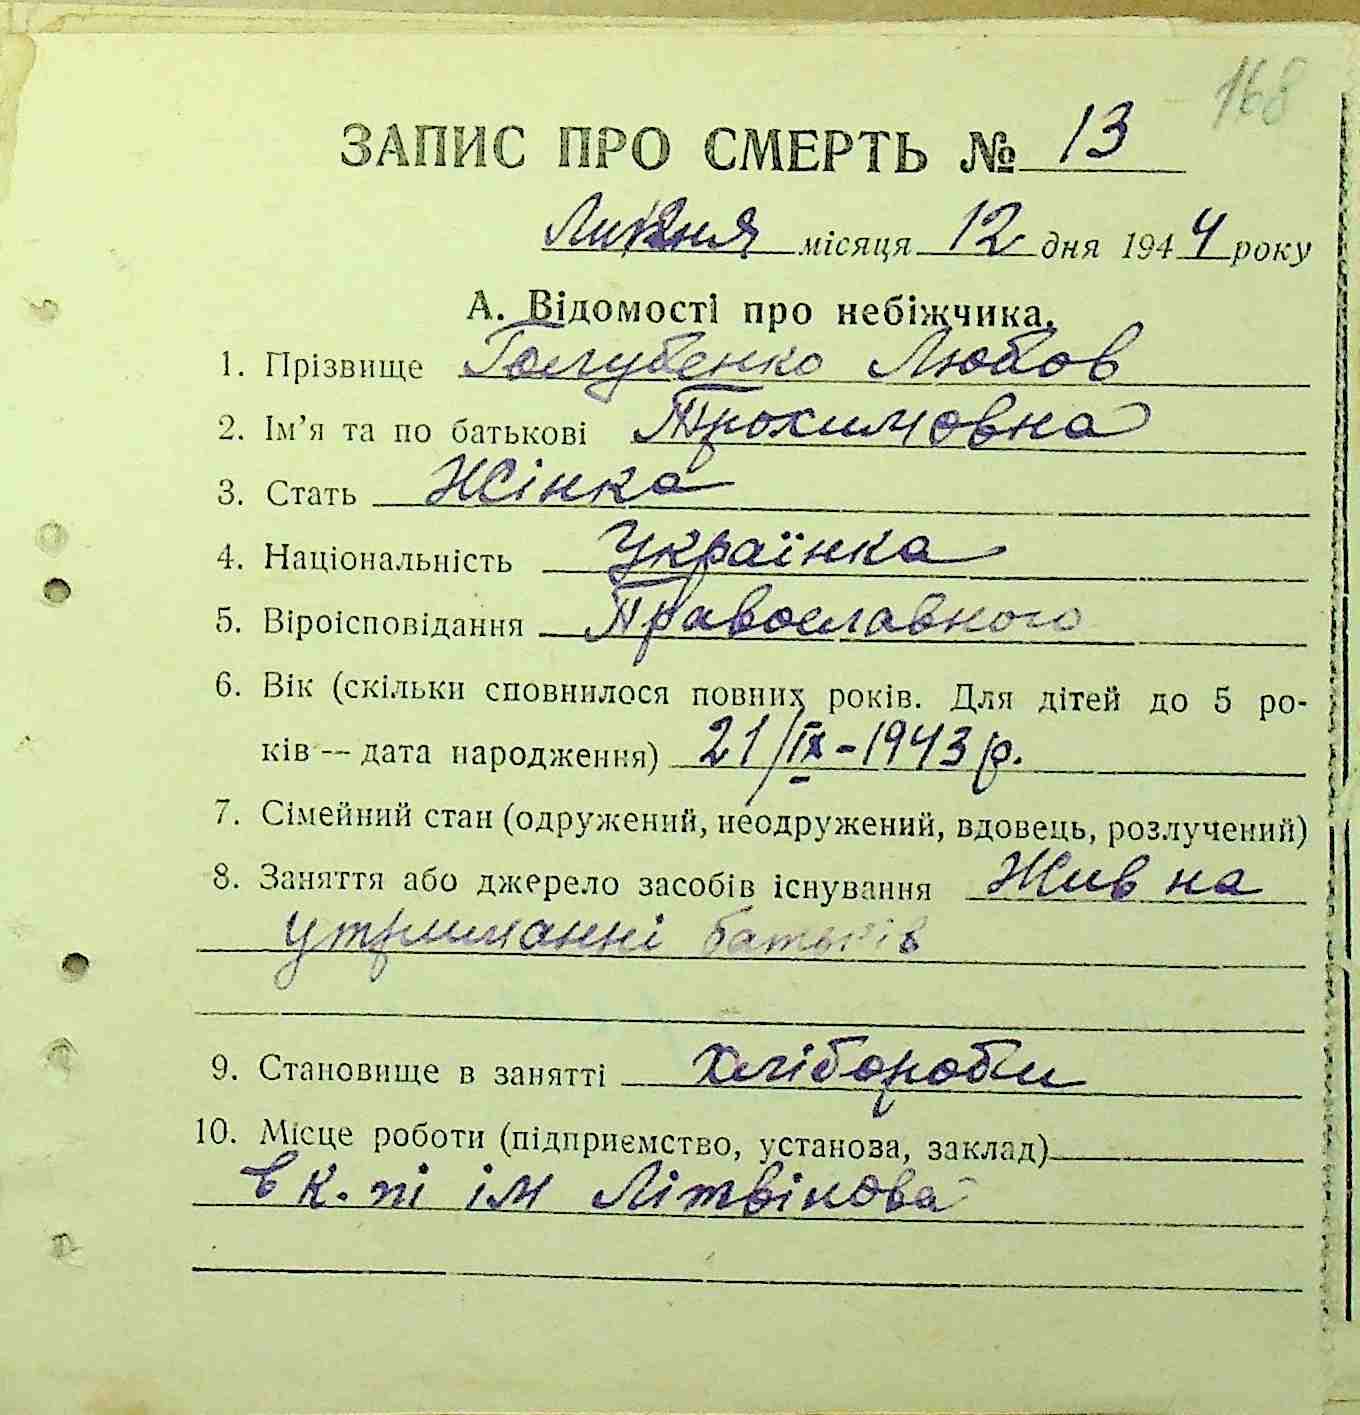 168
ЗАПИС ПРО СМЕРТЬ № 13
Липня місяця 12 дня 1944 року
А. Відомості про небіжчика.
1. Прізвище Голубенко Любов
2. Ім'я та по батькові Трохимовна
3. Стать Жінка
4. Національність Українка
5. Віроісповідання Православного
6. Вік (скільки сповнилося повних років. Для дітей до 5 ро-
ків -- дата народження) 21/IX-1943 р.
7. Сімейний стан (одружений, неодружений, вдовець, розлучений)
8. Заняття або джерело засобів існування Жив на
утриманні батьків
9. Становище в занятті хлібороби
10. Місце роботи (підприємство, установа, заклад)
в к. пі ім Літвінова